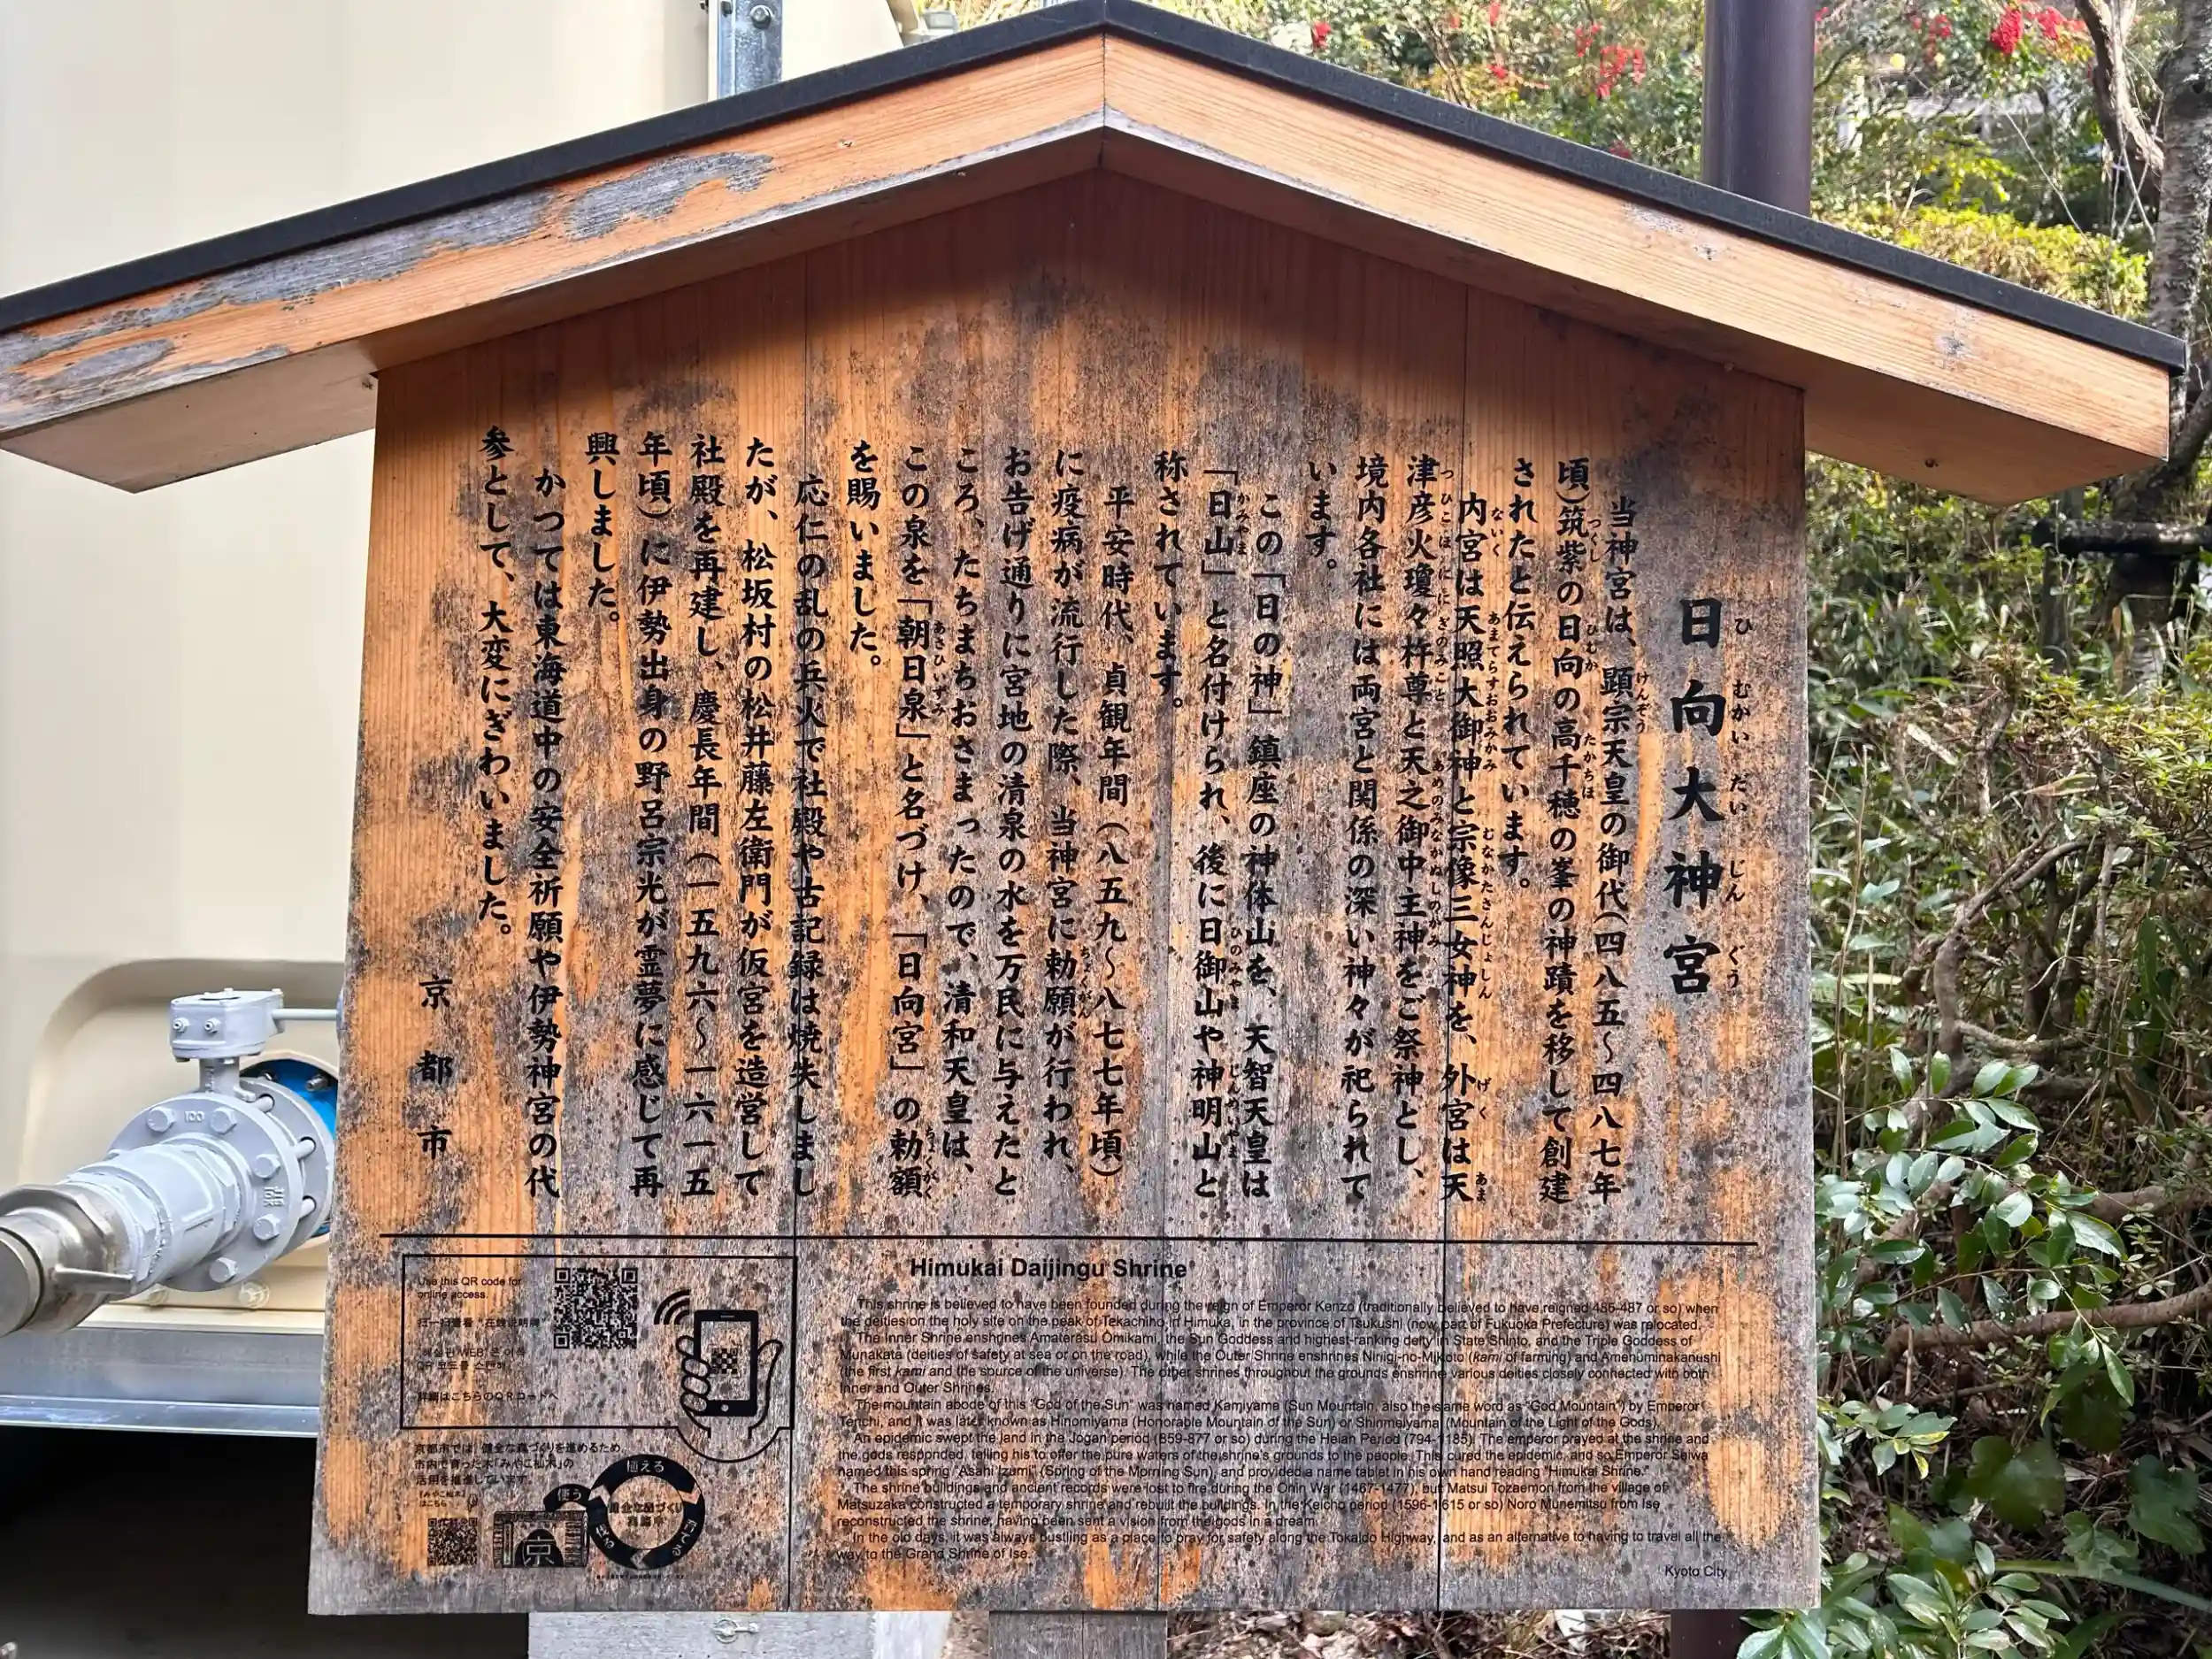 日向大神宮
ひ むかい だい じん ぐう
当神宮は、顕宗天皇の御代(四八五〜四八七年
けんぞう
頃)筑紫の日向の高千穂の峯の神蹟を移して創建
つくし ひむか たかちほ
されたと伝えられています。
内宮は天照大御神と宗像三女神を、外宮は天
ないく あまてらすおおみかみ むなかたさんじょしん げく あま
津彦火瓊々杵尊と天之御中主神をご祭神とし、
つひこほににぎのみこと あめのみなかぬしのかみ
境内各社には両宮と関係の深い神々が祀られて
います。
この「日の神」鎮座の神体山を、天智天皇は
「日山」と名付けられ、後に日御山や神明山と
かみやま ひのみやま じんめいやま
称されています。
平安時代、貞観年間(八五九〜八七七年頃)
に疫病が流行した際、当神宮に勅願が行われ、
ちょくがん
お告げ通りに宮地の清泉の水を万民に与えたと
ころ、たちまちおさまったので、清和天皇は、
この泉を「朝日泉」と名づけ、「日向宮」の勅額
あさひいずみ ちょくがく
を賜いました。
応仁の乱の兵火で社殿や古記録は焼失しまし
たが、松坂村の松井藤左衛門が仮宮を造営して
社殿を再建し、慶長年間(一五九六〜一六一五
年頃)に伊勢出身の野呂宗光が霊夢に感じて再
興しました。
かつては東海道中の安全祈願や伊勢神宮の代
参として、大変にぎわいました。
京都市
Himukai Daijingu Shrine
This shrine is believed to have been founded during the reign of Emperor Kenzo (traditionally believed to have reigned 485-487 or so) when
the deities on the holy site on the peak of Tekachiho in Himuka, in the province of Tsukushi (now part of Fukuoka Prefecture) was relocated.
The Inner Shrine enshrines Amaterasu Omikami, the Sun Goddess and highest-ranking deity in State Shinto, and the Triple Goddess of
Munakata (deities of safety at sea or on the road), while the Outer Shrine enshrines Ninigi-no-Mikoto (kami of farming) and Amenominakanushi
(the first kami and the source of the universe). The other shrines throughout the grounds enshrine various deities closely connected with both
Inner and Outer Shrines.
The mountain abode of this "God of the Sun" was named Kamiyama (Sun Mountain, also the same word as "God Mountain") by Emperor
Tenchi, and it was later known as Hinomiyama (Honorable Mountain of the Sun) or Shinmeiyama (Mountain of the Light of the Gods).
An epidemic swept the land in the Jogan period (859-877 or so) during the Heian Period (794-1185). The emperor prayed at the shrine and
the gods responded, telling his to offer the pure waters of the shrine's grounds to the people. This cured the epidemic, and so Emperor Seiwa
named this spring "Asahi Izumi" (Spring of the Morning Sun), and provided a name tablet in his own hand reading "Himukai Shrine."
The shrine buildings and ancient records were lost to fire during the Onin War (1467-1477), but Matsui Tozaemon from the village of
Matsuzaka constructed a temporary shrine and rebuilt the buildings. In the Keicho period (1596-1615 or so) Noro Munemitsu from Ise
reconstructed the shrine, having been sent a vision from the gods in a dream.
In the old days, it was always bustling as a place to pray for safety along the Tokaido Highway, and as an alternative to having to travel all the
way to the Grand Shrine of Ise.
Kyoto City
Use this QR code for
online access.
扫一扫查看 "在线说明牌"
"해설판 WEB"은 이쪽
QR 코드를 스캔해
詳細はこちらのQRコードへ
京都市では、健全な森づくりを進めるため、
市内で育った木「みやこ杣木」の
活用を推進しています。
【みやこ杣木】
はこちら
使う
植える
京
100